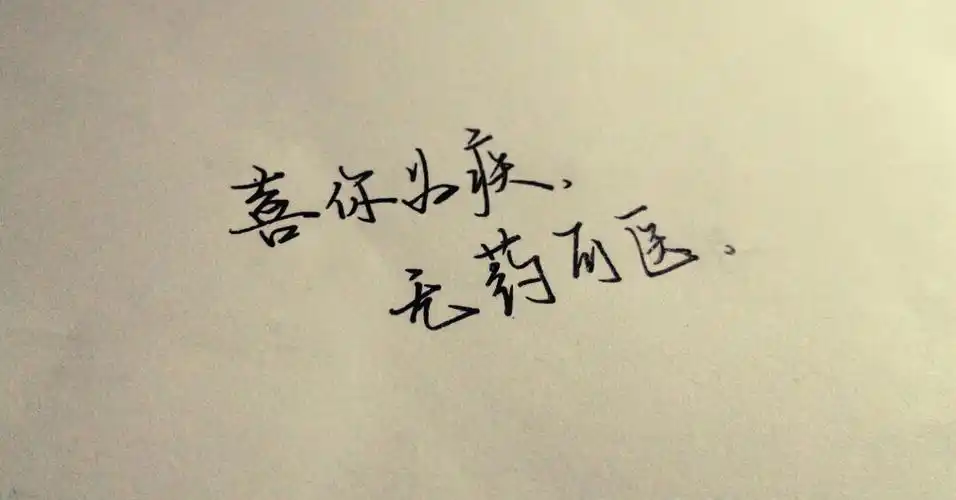 喜你为疾，
无药可医。